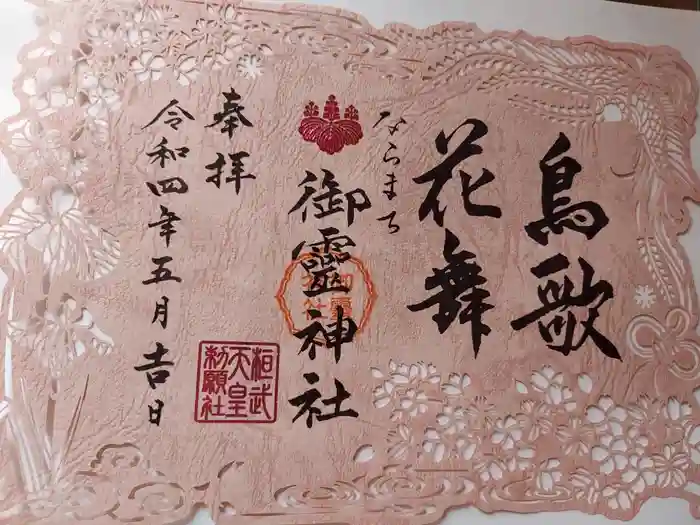 鳥歌
花舞
ならまち
御霊神社
奉拝
令和四年五月吉日
桓武
天皇
勅願社